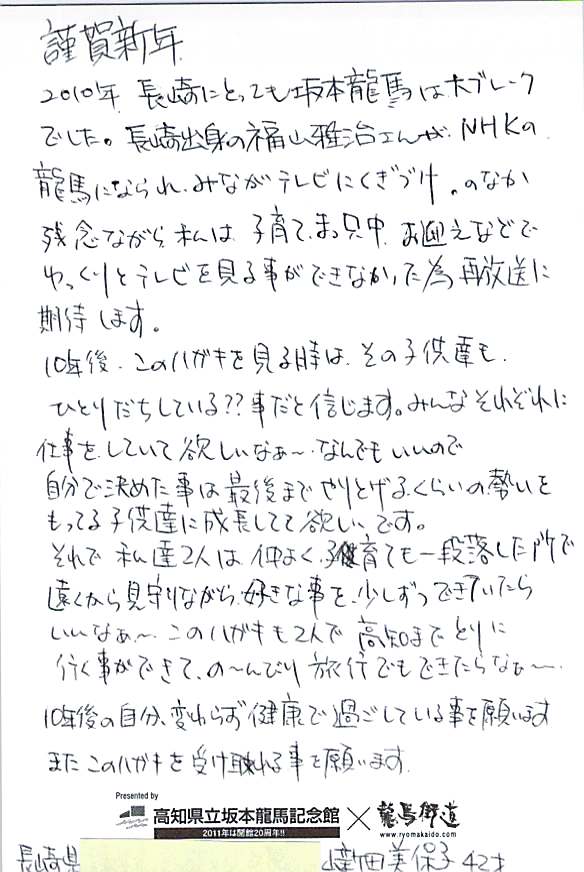 謹賀新年
2010年 長崎にとっても坂本龍馬は大ブレーク
でした。長崎出身の福山雅治さんが、NHKの
龍馬になられ、みながテレビにくぎづけ。のなか
残念ながら、私は、子育て、まっ只中、お迎えなどで
ゆっくりとテレビを見る事ができなかった為 再放送に
期待します。
10年後、このハガキを見る時は、その子供達も、
ひとりだちしている??事だと信じます。みんなそれぞれに
仕事をしていて欲しいなぁ〜、なんでもいいので
自分で決めた事は最後までやりとげるくらいの勢いを
もってる子供達に成長してて欲しいです。
それで私達2人は、仲よく、子育ても一段落した所で
遠くから見守りながら、好きな事を、少しずつできていたら
いいなぁ〜 このハガキも2人で 高知までとりに
行く事ができて、の〜んびり 旅行でもできたらなぁ〜
10年後の自分、変わらず健康で過ごしている事を願います
また このハガキを受け取れる事を願います。
Presented by
高知県立坂本龍馬記念館 × 龍馬街道
2011年は開館20周年!! www.ryomakaido.com
長崎県 田美保子 42才